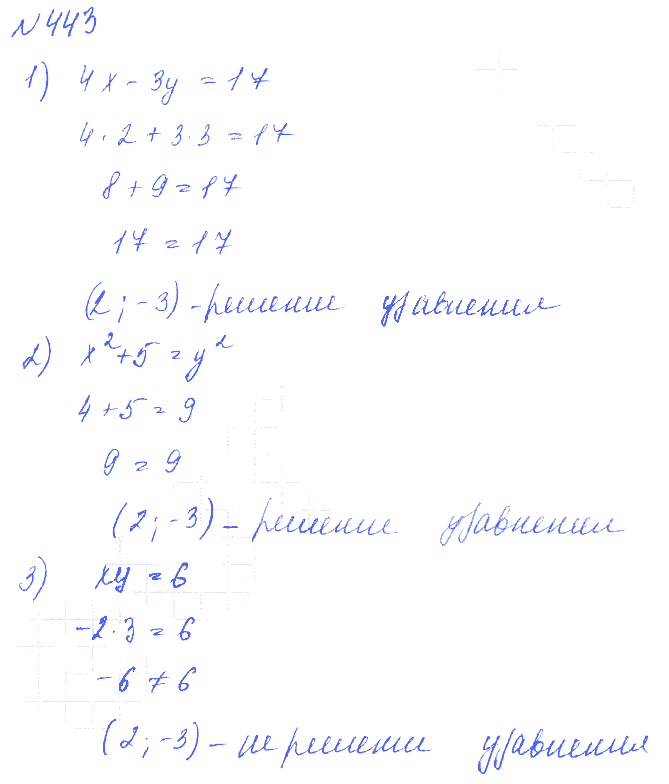 №443
1) 4x - 3y = 17
4 · 2 + 3 · 3 = 17
8 + 9 = 17
17 = 17
(2 ; -3) - решение уравнения
2) x² + 5 = y²
4 + 5 = 9
9 = 9
(2 ; -3) - решение уравнения
3) xy = 6
-2 · 3 = 6
-6 ≠ 6
(2 ; -3) - не решение уравнения